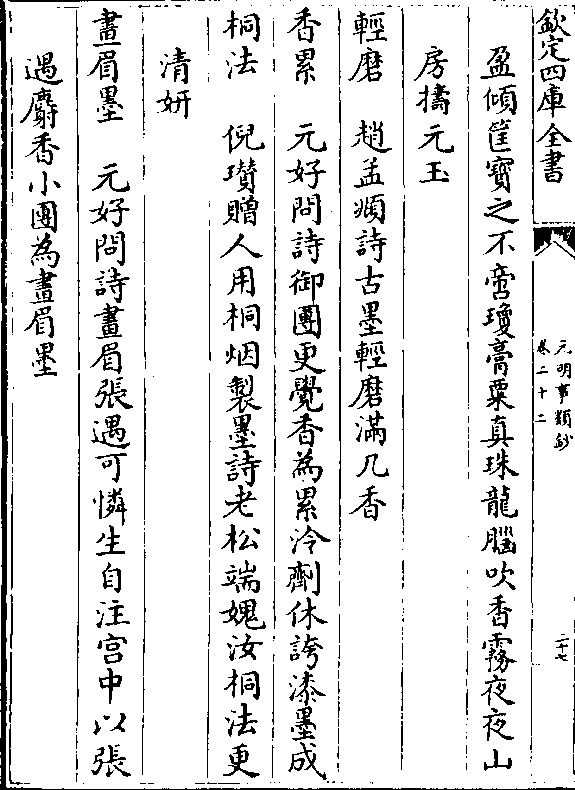 欽定四庫全書
元明事類鈔
卷二十二
二十七
盈傾筐寶之不啻瓊膏粟真珠龍腦吹香霧夜夜山
房擣元玉
輕磨　趙孟頫詩古墨輕磨滿几香
香累　元好問詩御團更覺香為累冷劑休誇漆墨成
桐法　倪瓚贈人用桐烟製墨詩老松端媿汝桐法更
清妍
畫眉墨　元好問詩畫眉張遇可憐生自注宫中以張
遇麝香小團為畫眉墨